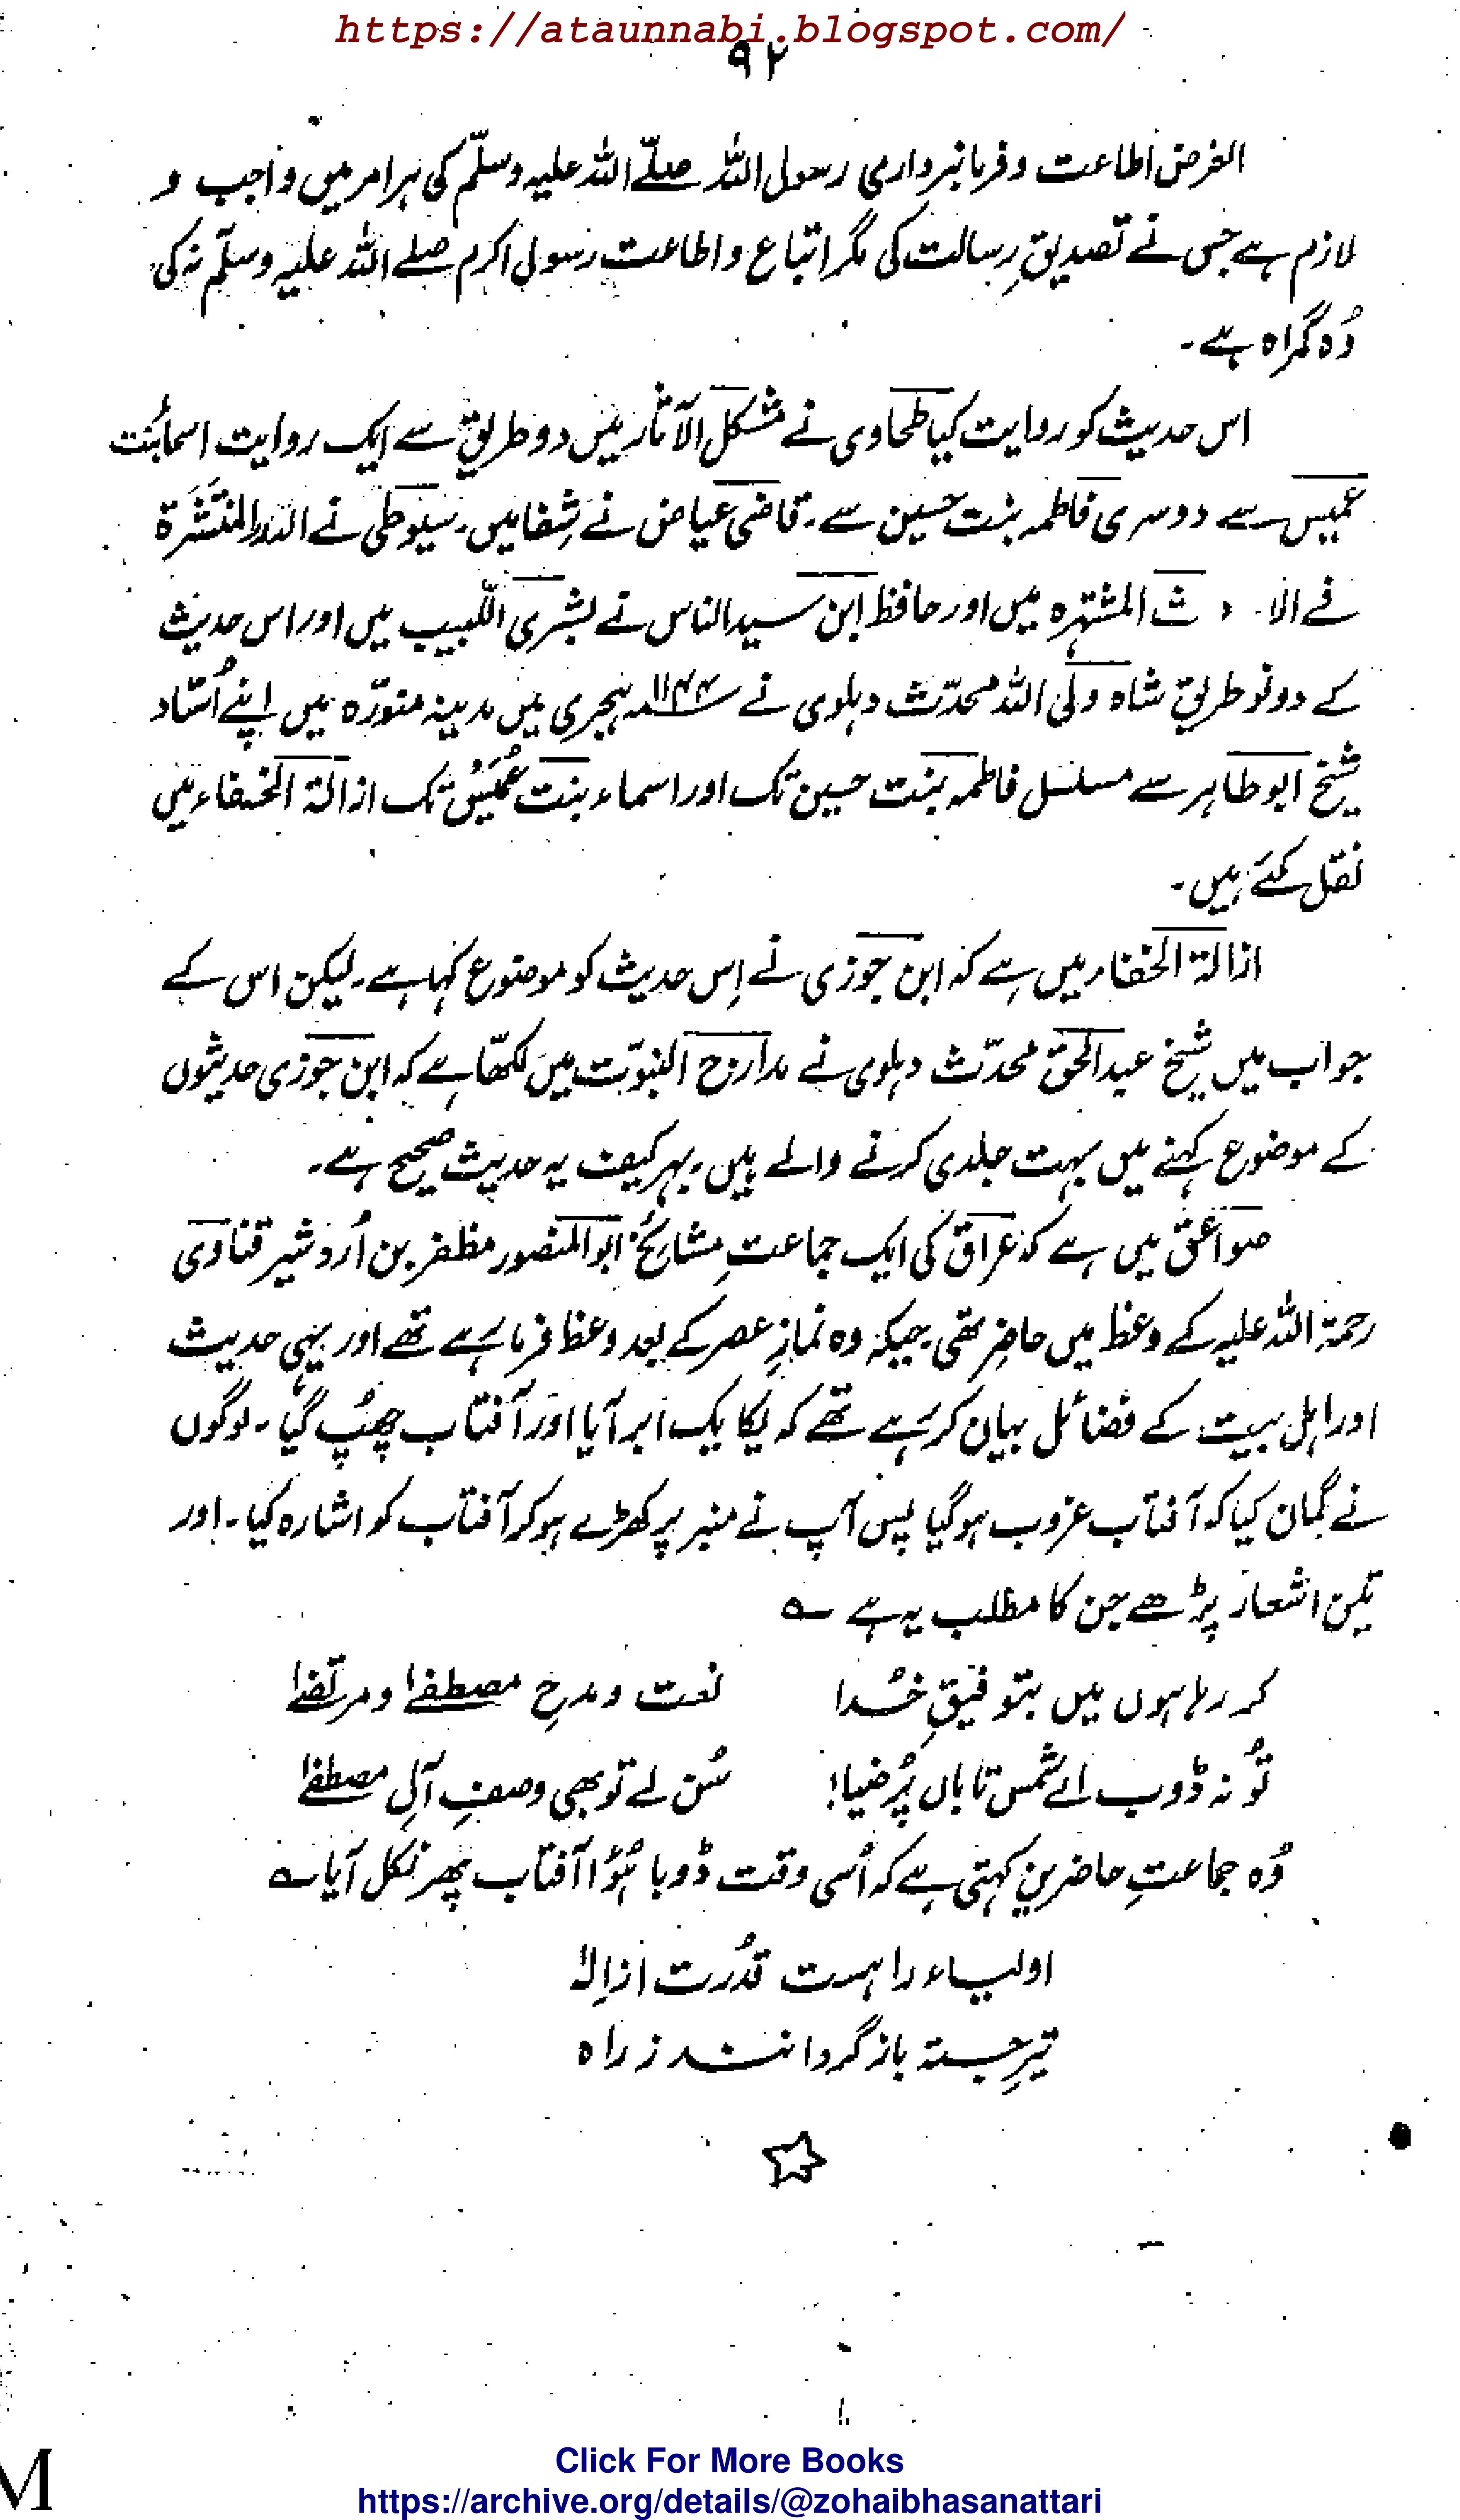 https://ataunnabi.blogspot.com/
۹۲
الغرض اطاعت و فرمانبرداری رسول اللہ صلے اللہ علیہ وسلّم کی ہر امر میں واجب و
لازم ہے جس نے تصدیقِ رسالت کی مگر اتباع و اطاعت رسول اکرم صلے اللہ علیہ وسلّم نہ کی
وُہ گمراہ ہے۔
اس حدیث کو روایت کیا طحاوی نے مشکل الآثار میں دو طریق سے ایک روایت اسما بنت
عمیس سے دوسری فاطمہ بنت حسین سے۔ قاضی عیاض نے شِفا میں۔ سیوطی نے الدرر المنتشرۃ
فے الا د ث المشتہرہ میں اور حافظ ابن سید الناس نے بشری اللّبیب میں اور اس حدیث
کے دونو طریق شاہ ولی اللہ محدّث دہلوی نے ۱۱۴۴ ہجری میں مدینہ منوّرہ میں اپنے اُستاد
شیخ ابو طاہر سے مسلسل فاطمہ بنت حسین تک اور اسماء بنت عُمَیسْ تک ازالۃ الخفاء میں
نقل کئے ہیں۔
ازالۃ الخفاء میں ہے کہ ابن جوزی نے اِس حدیث کو موضوع کہا ہے۔ لیکن اس کے
جواب میں شیخ عبدالحق محدّث دہلوی نے مدارج النبوّت میں لکھّا ہے کہ ابن جوزی حدیثوں
کے موضوع کہنے میں بہت جلدی کرنے والے ہیں۔ بہر کیف یہ حدیث صحیح ہے۔
صواعق میں ہے کہ عراق کی ایک جماعتِ مشائخ ابو المنصور مظفر بن اُردشیر قناوی
رحمۃ اللہ علیہ کے وعظ میں حاضر تھی۔ جبکہ وہ نمازِ عصر کے بعد وعظ فرما رہے تھے اور یہی حدیث
اور اہل بیت کے فضائل بیان کر رہے تھے کہ یکا یک ابر آیا اور آفتاب چھپُ گیا۔ لوگوں
نے گمان کیا کہ آفتاب غروب ہوگیا پس آپ نے منبر پر کھڑے ہو کر آفتاب کو اشارہ کیا۔ اور
تین اشعار پڑھے جن کا مطلب یہ ہے ؎
کر رہا ہوں میں بتوفیقِ خُدا نعت و مدحِ مصطفےٰ و مرتضےٰ
تُو نہ ڈوب اے شمس تاباں پُرضیا! سُن لے تو بھی وصفِ آلِ مصطفےٰ
وُہ جماعتِ حاضرین کہتی ہے کہ اُسی وقت ڈوبا ہُؤا آفتاب پھر نکل آیا ؎
اولیاء را ہست قدُرت از اِلٰہ
تیرِ جستہ باز گردانند ز راہ
M
Click For More Books
https://archive.org/details/@zohaibhasanattari